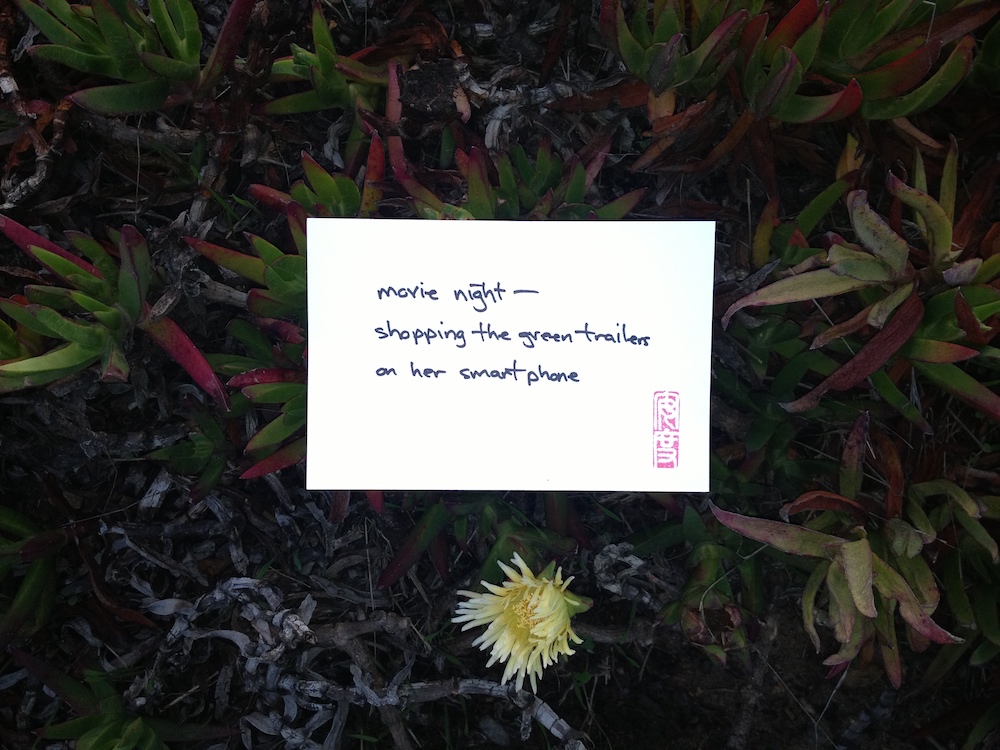 movie night —
shopping the green trailers
on her smartphone